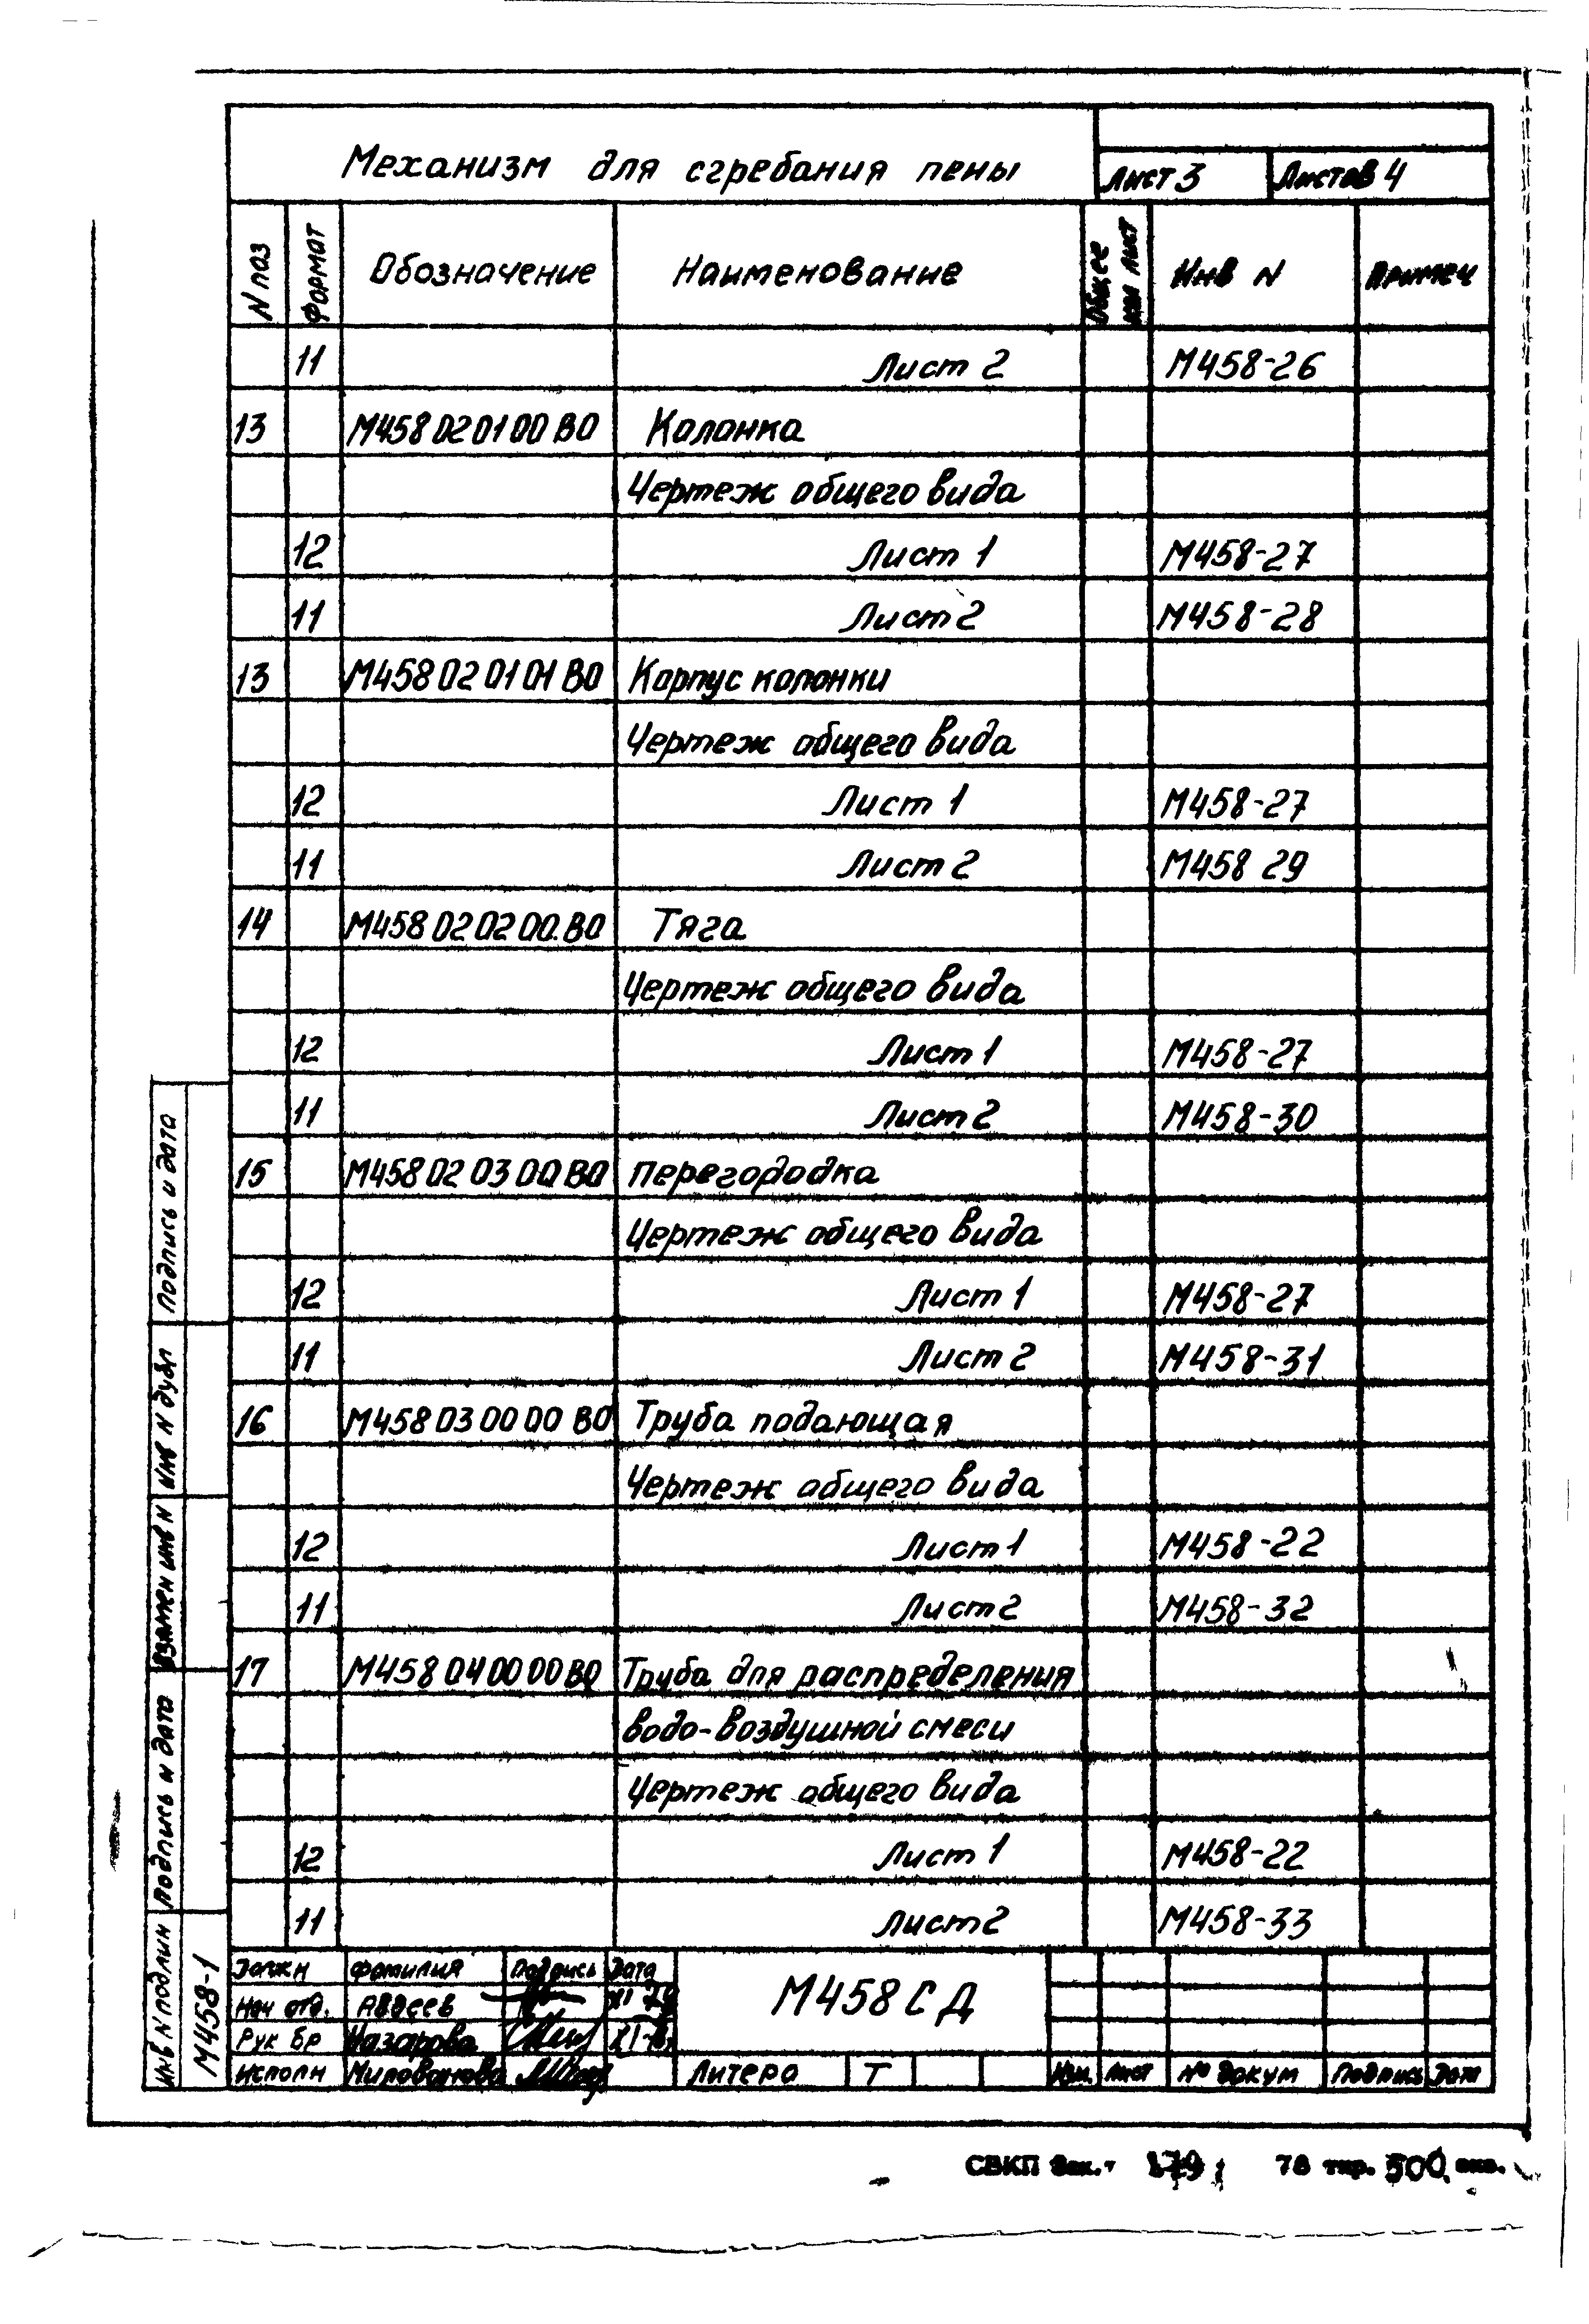 Механизм для сгребания пены
Лист 3 Листов 4
N поз Формат Обозначение Наименование Общее кол лист Инв N Примеч
11 Лист 2 М458-26
13 М458 02 01 00 ВО Колонка
Чертеж общего вида
12 Лист 1 М458-27
11 Лист 2 М458-28
13 М458 02 01 01 ВО Корпус колонки
Чертеж общего вида
12 Лист 1 М458-27
11 Лист 2 М458 29
14 М458 02 02 00.ВО Тяга
Чертеж общего вида
12 Лист 1 М458-27
11 Лист 2 М458-30
15 М458 02 03 00 ВО Перегородка
Чертеж общего вида
12 Лист 1 М458-27
11 Лист 2 М458-31
16 М458 03 00 00 ВО Труба подающая
Чертеж общего вида
12 Лист 1 М458-22
11 Лист 2 М458-32
17 М458 04 00 00 ВО Труба для распределения
водо-воздушной смеси
Чертеж общего вида
12 Лист 1 М458-22
11 Лист 2 М458-33
Подпись и дата
Инв N дубл
Взамен инв N
Подпись и дата
Инв N подлин М458-1
Должн Фамилия Подпись Дата
Нач отд. Авдеев
Рук бр Назарова
Исполн Милованова
М458 СД
Литера Т
Изм. Лист № докум Подпись Дата
СВКП Зак. 78 тир. 500 экз.